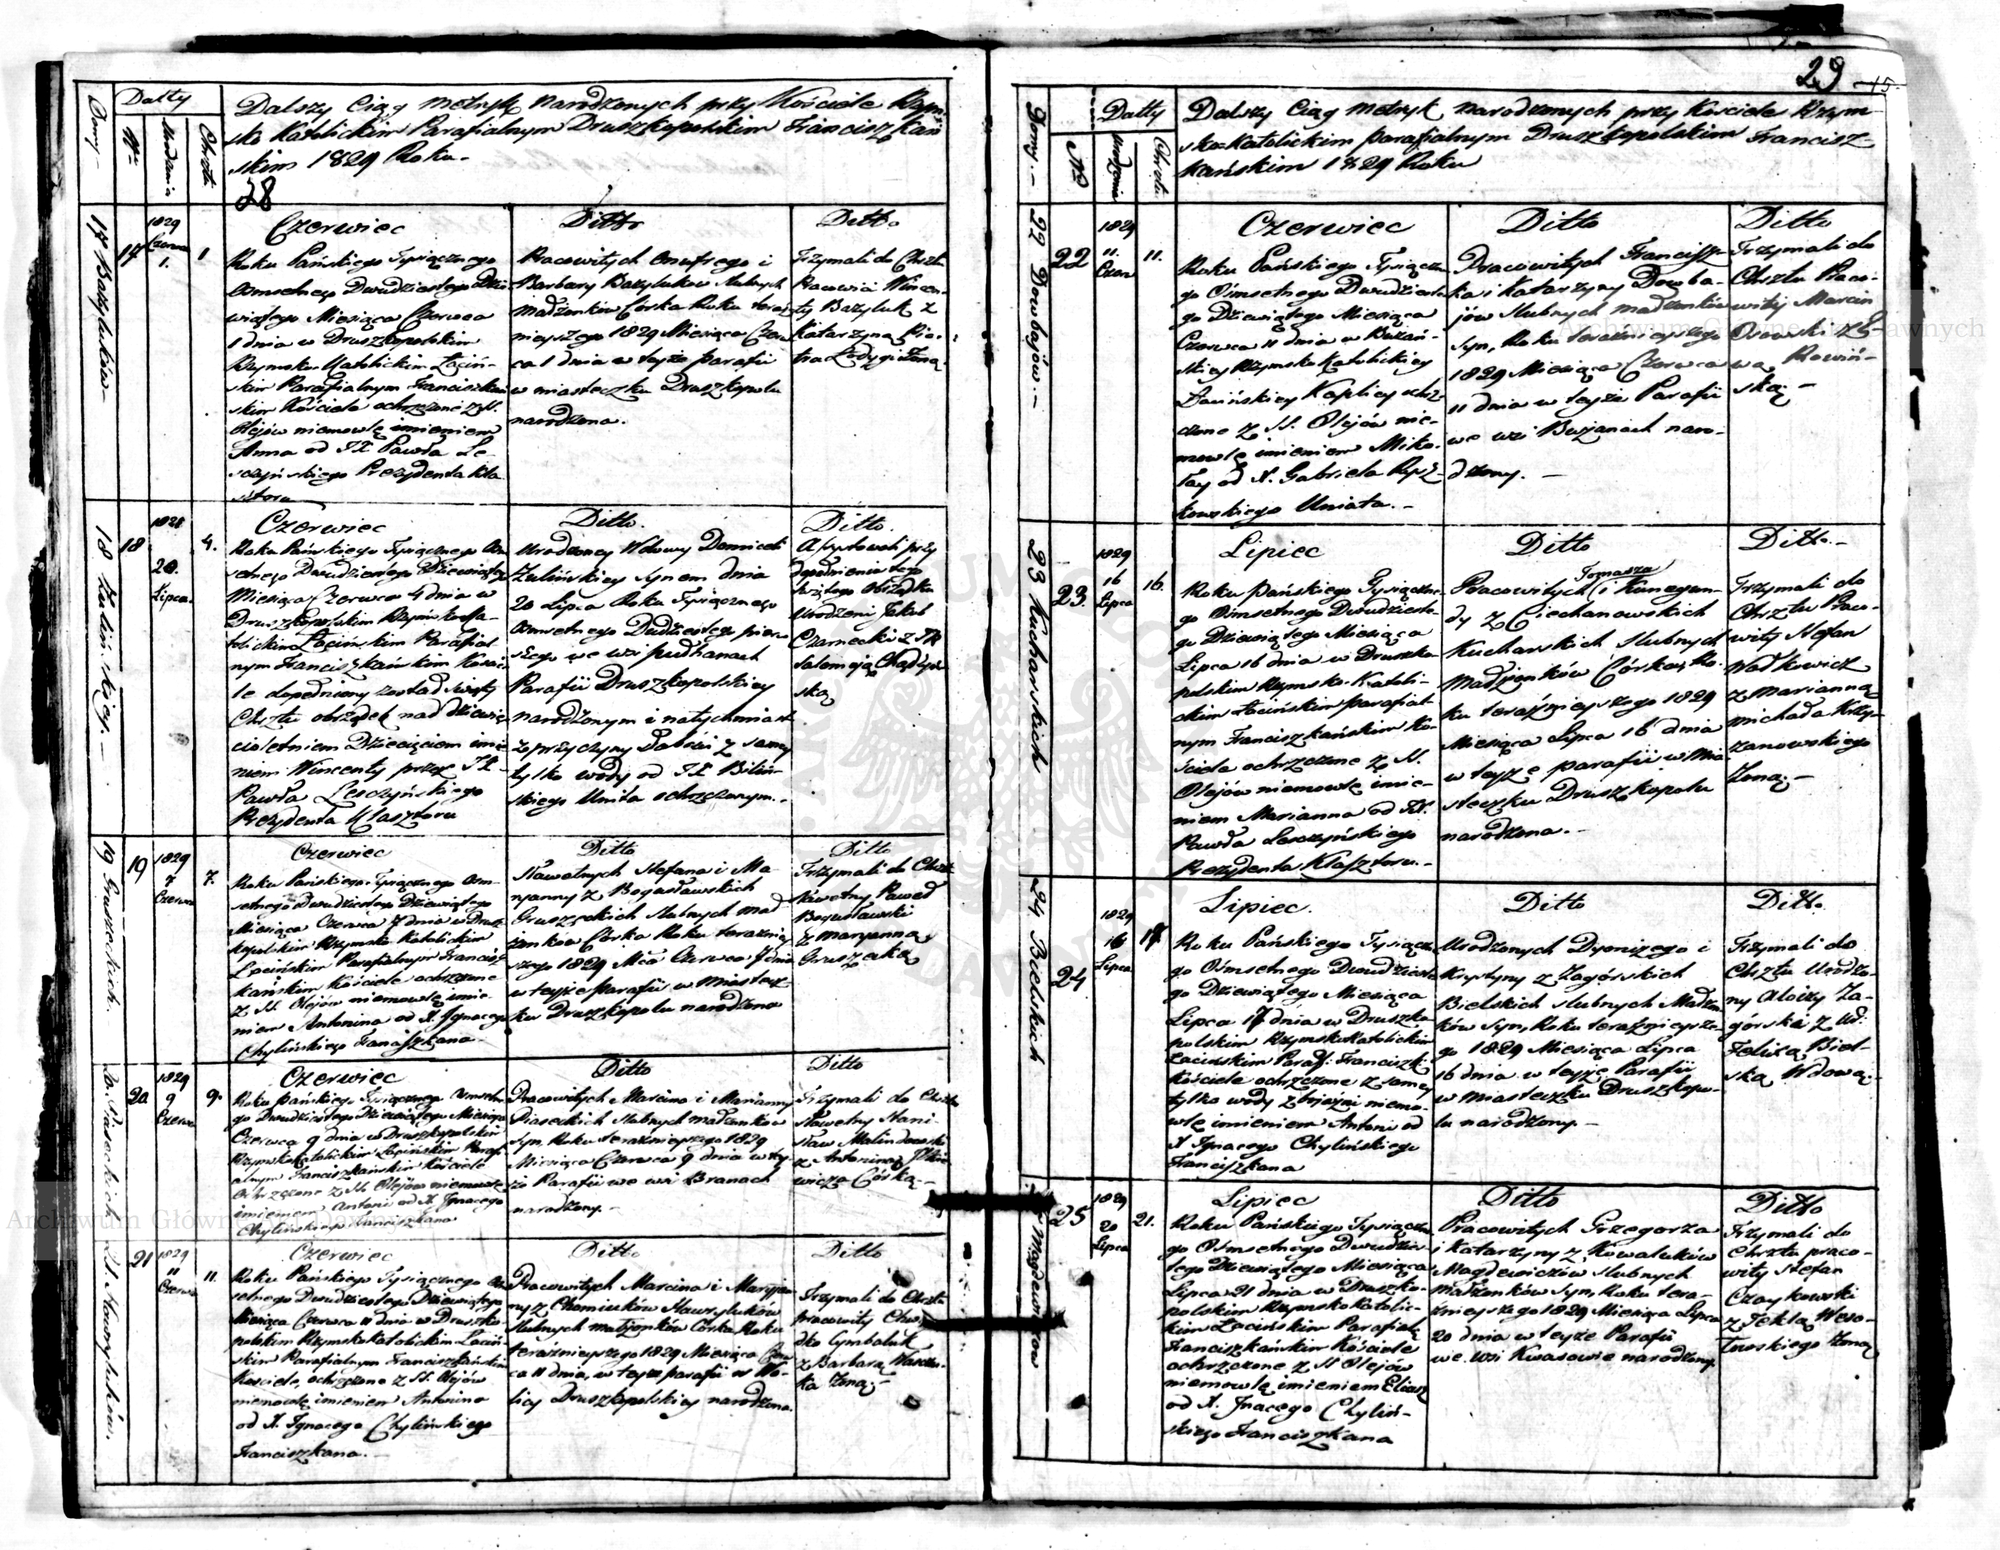 28
Domy.
Datty
No
Urodzenia
Chrztu
Dalszy Ciąg metryk narodzonych przy Kościele Rzym-
sko Katolickim Parafialnym Druszkopolskim Franciszkań
skim 1829 Roku.
17 Bazyluków
17
1829
Czerwca
1.
1
Czerwiec
Roku Pańskiego Tysiącznego
Osmsetnego Dwudziestego Dzie
wiątego Miesiąca Czerwca
1 dnia w Druszkopolskim
Rzymsko Katolickim Łaciń-
skim Parafialnym Franciszkań
skim Kościele ochrzczone z SS.
Olejów niemowlę imieniem
Anna od JX Pawła Le-
szczyńskiego Prezydenta Kla
sztoru
Ditto
Pracowitych Onufrego i
Barbary Bazyluków slubnych
małżonków Córka Roku teraz
nieyszego 1829 Miesiąca Czer
ca 1 dnia w teyże parafii
w miasteczku Druszkopolu
narodzona.
Ditto
Trzymali do Chrztu
Pracowici Wincen-
ty Bazyluk z
Katarzyną Pio-
tra żoną.
18
18
20
Lipca.
4.
Czerwiec
Roku Pańskiego Tysiącznego Osm
setnego Dwudziestego Dziewiątego
Miesiąca Czerwca 4 dnia w
Druszkopolskim Rzymsko Ka-
tolickim Łacińskim Parafial
nym Franciszkańskim Koście
le dopełniony został święty
Chrztu obrządek nad dziewię
cioletniem Dziecięciem imie
niem Wincenty przez JX
Pawła Leszczyńskiego
Prezydenta Klasztoru
Ditto.
Urodzoney Wdowy Domiceli
Zulińskiey synem dnia
20 Lipca Roku Tysiącznego
Osmsetnego Dudziestego pier
szego we wsi
Parafii Druszkopolskiey
narodzonym i natychmiast
z przyczyny słabości z samey
tylko wody od JX Biliń-
skiego Unita ochrzczonym.
Ditto.
Assystowali przy
dopełnieniu tego
świętego obrządku
Urodzeni Jakub
Czarnecki z JP
Salomeją
ską
19 Gruszeckich.
19
1829
7
Czerwca
7.
Czerwiec
Roku Pańskiego Tysiącznego Osm-
setnego Dwudziestego Dziewiątego
Miesiąca Czerwca 7 dnia w Drusz
kopolskim Rzymsko Katolickim
Łacińskim Parafialnym Francisz
kańskim Kościele ochrzczone
z SS. Olejów niemowlę imie-
niem Antonina od X. Jgnacego
Chylińskiego Franciszkana.
Ditto
Sławetnych Stefana i Ma-
ryanny z Bogusławskich
Gruszeckich slubnych mał
żonków Córka Roku teraźniej
szego 1829 Mca Czerwca 7 dnia
w teyże parafii w Miastecz
ku Druszkopolu narodzona
Ditto
Trzymali do Chrztu
Sławetny Paweł
Bogusławski
z Maryanną
Gruszecką
20 Piaseckich
20
1829
9
Czerwca
9.
Czerwiec
Roku Pańskiego Tysiącznego Osmsetne
go Dwudziestego Dziewiątego Miesiąca
Czerwca 9 dnia w Druszkopolskim
Rzymsko Katolickim Łacińskim Paraf
alnym Franciszkańskim Kościele
Ochrzczone z SS. Olejów niemowle
imieniem Antoni od X. Jgnacego
Chylińskiego Franciszkana
Ditto
Pracowitych Marcina i Marianny
Piaseckich slubnych małżonków
Syn, Roku teraźnieyszego 1829
Miesiąca Czerwca 9 dnia w tey
że Parafii we wsi Branach
narodzony.
Ditto
Trzymali do Chrztu
Sławetny Stani
sław Malinowski
z Antoniną
wicza Córką.
21 Hawryluków.
21
1829
11
Czerwca
11.
Czerwiec
Roku Pańskiego Tysiącznego Osm
setnego Dwudziestego Dziewiątego
Miesiąca Czerwca 11 dnia w Druszko
polskim Rzymsko Katolickim Łaciń
skim Parafialnym Franciszkańskim
Kościele, ochrzczone z SS. Olejów
niemowlę imieniem Antonina
od X. Jgnacego Chylińskiego
Franciszkana.
Ditto
Pracowitych Marcina i Maryan
ny z Chomiuków Hawryluków
slubnych małżonków Córka Roku
teraźnieyszego 1829 Miesiąca Czer
ca 11 dnia, w teyże parafii w Wo-
licy Druszkopolskiey narodzona.
Ditto
Trzymali do Chrztu
pracowity Chwe
dko Cymbaluk
z Barbarą
ka żoną.
29
15
Domy.
Datty
No
Urodzenia
Chrztu.
Dalszy Ciąg metryk narodzonych przy Kościele Rzym-
sko-Katolickim parafialnym Druszkopolskim Francisz
kańskim 1829 Roku
22 Dowbajów.
22
1829
11.
Czerw
11.
Czerwiec
Roku Pańskiego Tysiączne
go Ośmsetnego Dwudzieste
go Dziewiątego Miesiąca
Czerwca 11 dnia w Bużań-
skiey Rzymsko Katolickiey
Łacińskiey Kaplicy ochrz-
czone z SS. Olejów nie-
mowlę imieniem Miko-
łay od X. Gabriela Rysz-
kowskiego Uniata.
Ditto
Pracowitych Francisz-
ka i Katarzyny Dowba-
jów slubnych małżonków
syn, Roku teraźnieyszego
1829 Miesiąca Czerwca
11 dnia w teyże Parafii
we wsi Bużanach naro-
dzony.
Ditto
Trzymali do
Chrztu Praco-
wity Marcin
Osowski z
wą Rowiń-
ską.
23 Kucharskich
23.
1829
16
Lipca
16.
Lipiec
Roku Pańskiego Tysiączne-
go Ośmsetnego Dwudzieste
go Dziewiątego Miesiąca
Lipca 16 dnia w Druszko-
polskim Rzymsko-Katoli-
ckim Łacińskim Parafial
nym Franciszkańskim Ko-
ściele ochrzczone z SS.
Olejów niemowlę imie-
niem Marianna od JX.
Pawła Leszczyńskiego
Prezydenta Klasztoru.
Ditto
Tomasza
Pracowitych i Kunegun-
dy z Ciechanowskich
Kucharskich slubnych
Małżonków Córka, Ro-
ku teraźnieyszego 1829
Miesiąca Lipca 16 dnia
w teyże parafii w Mia
steczku Druszkopolu
narodzona.
Ditto.
Trzymali do
Chrztu Praco-
wity Stefan
Wołkiewicz
z Marianną
Michała Krzy-
żanowskiego
żoną.
24 Bielskich
24
1829
16
Lipca
17.
Lipiec.
Roku Pańskiego Tysiączne
go Ośmsetnego Dwudzieste
go Dziewiątego Miesiąca
Lipca 17 dnia w Druszko-
polskim Rzymsko Katolickim
Łacińskim Paraf: Francisz:
Kościele ochrzczone z samey
tylko wody niemo-
wlę imieniem Antoni od
X Jgnacego Chylińskiego
Franciszkana
Ditto
Urodzonych Dyonizego i
Krystyny z Zagórskich
Bielskich slubnych Małżon
ków Syn, Roku teraźnieysze-
go 1829 Miesiąca Lipca
16 dnia w teyże Parafii
w Miasteczku Druszkopo-
lu narodzony.
Ditto.
Trzymali do
Chrztu Urodzo-
ny Aloizy Za-
górski z Ur:
Felixą Biel-
ską Wdową.
25 Magdewiczów
25
1829
20
Lipca
21.
Lipiec
Roku Pańskiego Tysiączne
go Ośmsetnego Dwudzies-
tego Dziewiątego Miesiąca
Lipca 21 dnia w Druszko-
polskim Rzymsko Katolic-
kim Łacińskim Parafial:
Franciszkańskim Kościele
ochrzczone z SS Olejów
niemowlę imieniem Eliasz
od X. Jnacego Chyliń-
skiego Franciszkana
Ditto
Pracowitych Grzegorza
i Katarzyny z Kowaluków
Magdewiczów slubnych
małżonków Syn, Roku tera-
źnieyszego 1829 Miesiąca Lipca
20 dnia w teyże Parafii
we wsi Kwasowie narodzony.
Ditto
Trzymali do
Chrztu praco-
wity Stefan
Czaykowski
z Teklą Weso-
łowskiego żoną
Archiwum Główne Akt Dawnych